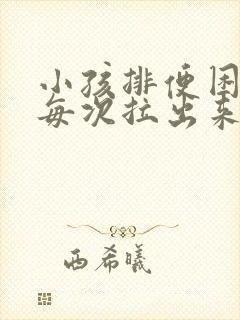 小孩排便困
每次拉出来
西希曦